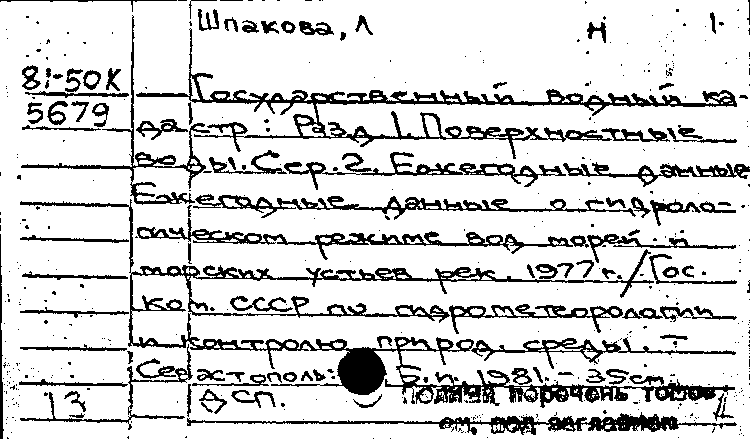 Шпакова, Л Н 1.
81-50К
5679
Государственный водный ка-
дастр: Разд 1. Поверхностные
воды. Сер. 2. Ежегодные данные
Ежегодные данные о гидроло-
гическом режиме вод морей и
морских устьев рек. 1977 г. / Гос.
ком. СССР по гидрометеорологии
и контролю природ. среды. -
Севастополь: Б.и. 1981. - 35 см.
13 ДСП. Полный перечень томов
см. под заглавием